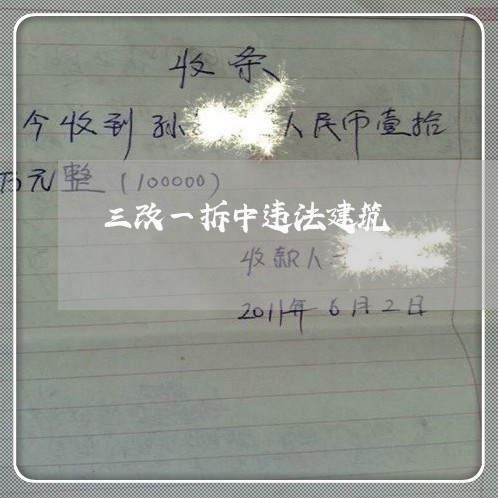 收条
今收到孙 人民币壹拾
万元整（100000）
三改一拆中违法建筑
收款人
2011年6月2日